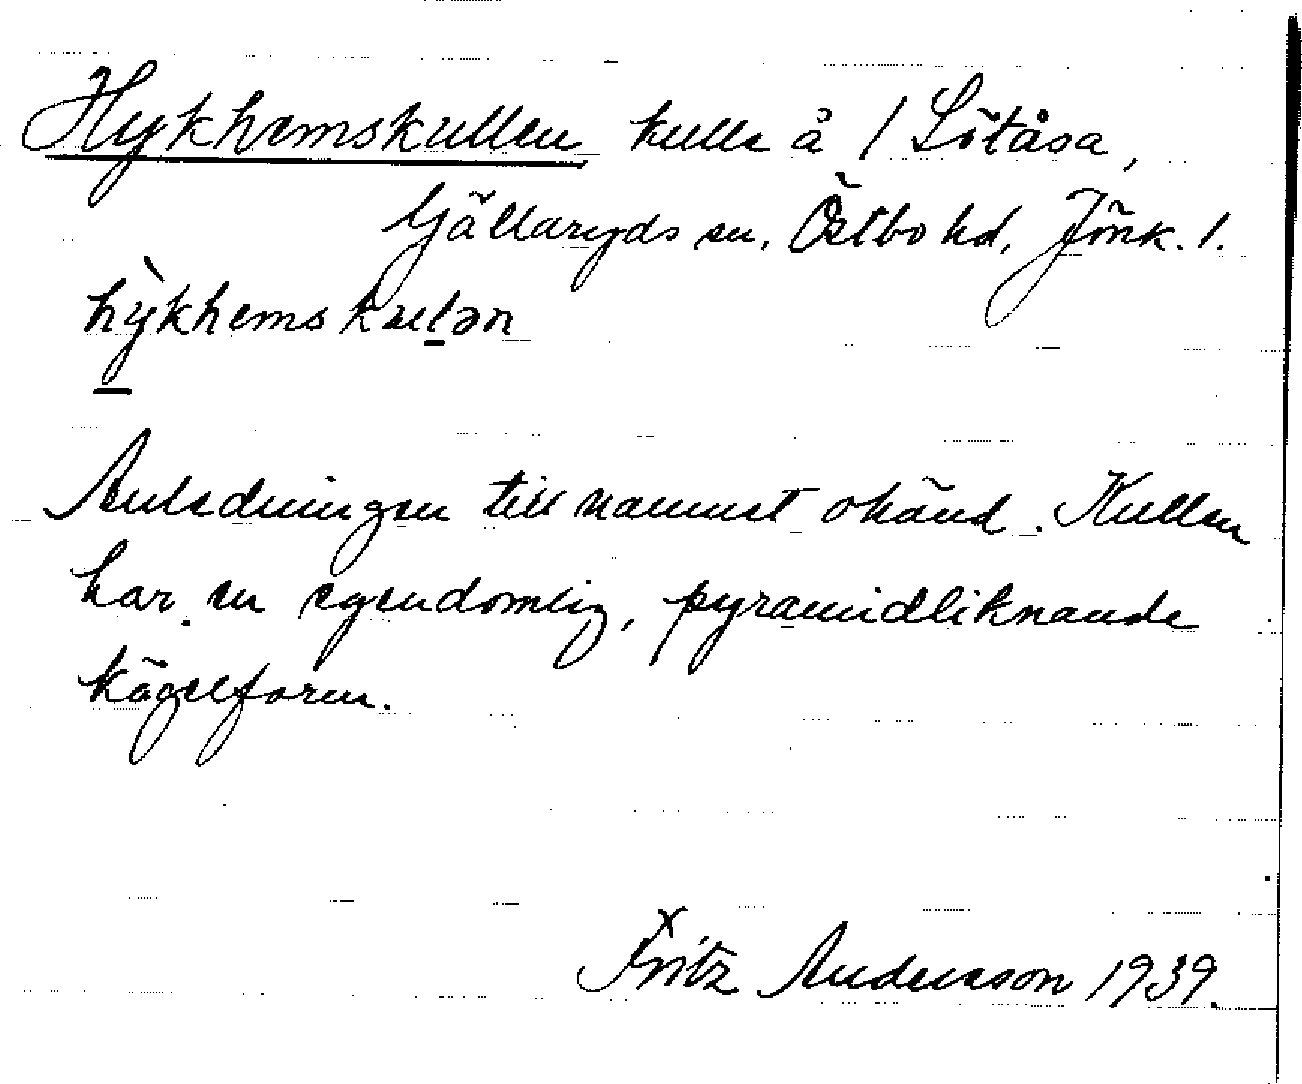 Hykhemskullen kulle å 1 Lötåsa,
Gällaryds sn, Östbo hd, Jönk. l.
hỳkhemskulən
Anledningen till namnet okänd. Kullen
har en egendomlig, pyramidliknande
kägelform.
Fritz Anderson 1939.